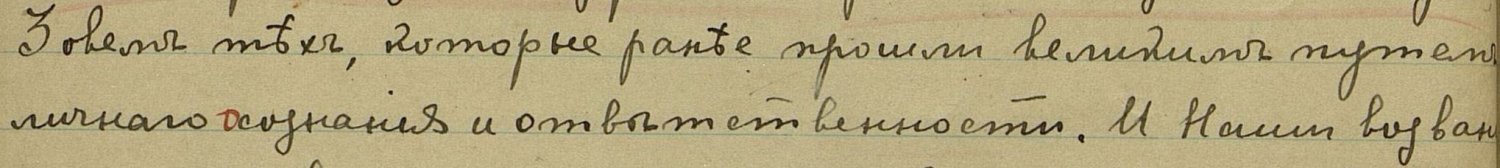 Зовемъ тѣхъ, которые ранѣе прошли великимъ путемъ
личнаго осознанія и отвѣтственности. И Наши воззван